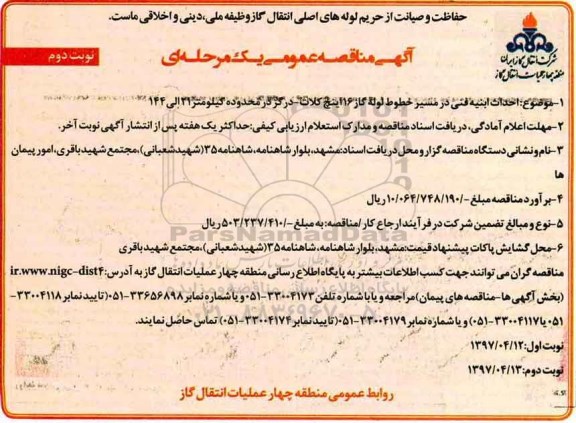 حفاظت و صیانت از حریم لوله های اصلی انتقال گاز وظیفه ملی، دینی و اخلاقی ماست.
شرکت انتقال گاز ایران
منطقه چهار عملیات انتقال گاز
آگهی مناقصه عمومی یک مرحله‌ای
نوبت دوم
۱-موضوع: احداث ابنیه فنی در مسیر خطوط لوله گاز ۱۶ اینچ کلات- درگز در محدوده کیلومتر ۳۱ الی ۱۴۴
۲-مهلت اعلام آمادگی، دریافت اسناد مناقصه و مدارک استعلام ارزیابی کیفی: حداکثر یک هفته پس از انتشار آگهی نوبت آخر.
۳-نام و نشانی دستگاه مناقصه گزار و محل دریافت اسناد: مشهد، بلوار شاهنامه، شاهنامه ۳۵ (شهید شعبانی)، مجتمع شهید باقری، امور پیمان
ها
۴-برآورد مناقصه مبلغ -/۱۰/۰۶۴/۷۴۸/۱۹۰ ریال
۵-نوع و مبالغ تضمین شرکت در فرآیند ارجاع کار/مناقصه: به مبلغ -/۵۰۳/۲۳۷/۴۱۰ ریال
۶-محل گشایش پاکات پیشنهاد قیمت: مشهد، بلوار شاهنامه، شاهنامه ۳۵ (شهید شعبانی)، مجتمع شهید باقری
مناقصه گران می توانند جهت کسب اطلاعات بیشتر به پایگاه اطلاع رسانی منطقه چهار عملیات انتقال گاز به آدرس: ir.www.nigc-dist۴
(بخش آگهی ها-مناقصه های پیمان) مراجعه و یا با شماره تلفن ۳۳۰۰۴۱۷۳-۰۵۱ و یا شماره نمابر ۳۳۶۵۶۸۹۸-۰۵۱ (تایید نمابر ۳۳۰۰۴۱۱۸-
۰۵۱ یا ۳۳۰۰۴۱۱۷-۰۵۱) و یا شماره نمابر ۳۳۰۰۴۱۷۹-۰۵۱ (تایید نمابر ۳۳۰۰۴۱۷۴-۰۵۱) تماس حاصل نمایند.
نوبت اول: ۱۳۹۷/۰۴/۱۲
نوبت دوم: ۱۳۹۷/۰۴/۱۳
روابط عمومی منطقه چهار عملیات انتقال گاز
ParsNamadData
پایگاه اطلاع رسانی مناقصه و مزایده
۰۲۱-۸۸۳۴۹۶۷۰-۵